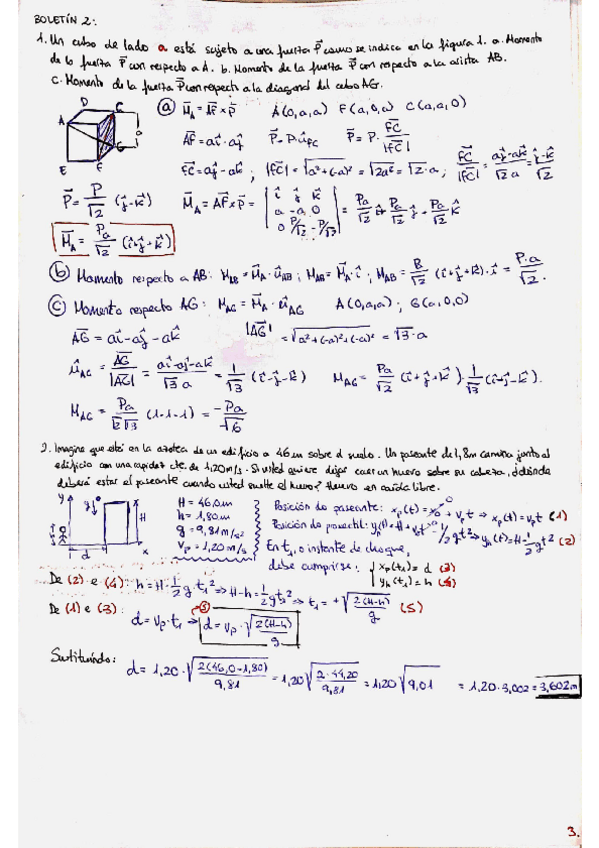 BOLETÍN 2:
1. Un cubo de lado a está sujeto a una fuerza P⃗ como se indica en la figura 1. a. Momento
de la fuerza P⃗ con respecto a A. b. Momento de la fuerza P⃗ con respecto a la arista AB.
c. Momento de la fuerza P⃗ con respecto a la diagonal del cubo AG.
D C A B G E F a
ⓐ M⃗_A = AF⃗ × P⃗ A(0,a,a) F(a,0,a) C(a,a,0)
AF⃗ = ai⃗ - aj⃗ P⃗ = P·û_FC P⃗ = P· FC⃗/|FC⃗|
FC⃗ = aj⃗ - ak⃗ ; |FC⃗| = √(a²+(-a)²) = √(2a²) = √2·a ; FC⃗/|FC⃗| = (aj⃗-ak⃗)/(√2 a) = (j⃗-k⃗)/√2
P⃗ = P/√2 (j⃗-k⃗) M⃗_A = AF⃗ × P⃗ = | i⃗ j⃗ k⃗ ; a -a 0 ; 0 P/√2 -P/√2 | = Pa/√2 i⃗ + Pa/√2 j⃗ + Pa/√2 k⃗
M⃗_A = Pa/√2 (i⃗+j⃗+k⃗)
ⓑ Momento respecto a AB: M_AB = M⃗_A·û_AB ; M_AB = M⃗_A·i⃗ ; M_AB = Pa/√2 (i⃗+j⃗+k⃗)·i⃗ = P·a/√2.
ⓒ Momento respecto AG: M_AG = M⃗_A·û_AG A(0,a,a) ; G(a,0,0)
AG⃗ = ai⃗ - aj⃗ - ak⃗ |AG⃗| = √(a²+(-a)²+(-a)²) = √3·a
û_AG = AG⃗/|AG⃗| = (ai⃗-aj⃗-ak⃗)/(√3 a) = 1/√3 (i⃗-j⃗-k⃗) M_AG = Pa/√2 (i⃗+j⃗+k⃗)·1/√3 (i⃗-j⃗-k⃗).
M_AG = Pa/(√2√3) (1-1-1) = -Pa/√6
2. Imagine que está en la azotea de un edificio a 46m sobre el suelo. Un paseante de 1,8m camina junto al
edificio con una rapidez cte. de 1,20m/s. Si usted quiere dejar caer un huevo sobre su cabeza, ¿dónde
deberá estar el paseante cuando usted suelte el huevo? Huevo en caída libre.
y g H h d x
H = 46,0m
h = 1,80m
g = 9,81m/s²
v_p = 1,20m/s
Posición de paseante: x_p(t) = x₀ + v_p t ⇒ x_p(t) = v_p t (1)
Posición de proyectil: y_h(t) = H + v₀t - 1/2 gt² ⇒ y_h(t) = H - 1/2 gt² (2)
En t₁, o instante de choque,
debe cumplirse: { x_p(t₁) = d (3)
y_h(t₁) = h (4)
De (2) e (4): h = H - 1/2 g t₁² ⇒ H-h = 1/2 g t₁² ⇒ t₁ = +√(2(H-h)/g) (5)
De (1) e (3): d = v_p·t₁ ⇒(5) d = v_p·√(2(H-h)/g)
Sustituíndo: d = 1,20·√(2(46,0-1,80)/9,81) = 1,20√(2·44,20/9,81) = 1,20√9,01 = 1,20·3,002 = 3,602m
3.